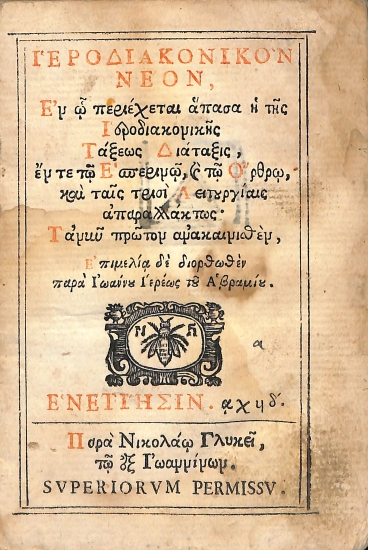 ἹΕΡΟΔΙΑΚΟΝΙΚῸΝ
ΝΕΟΝ,
Ἐν ᾧ περιέχεται ἅπασα ἡ τῆς
Ἱεροδιακονικῆς
Τάξεως Διάταξις,
ἔν τε τῷ Ἑσπερινῷ, ϗ τῷ Ὄρθρῳ,
καὶ ταῖς τρισὶ Λειτουργίαις
ἀπαραλλάκτως·
Τανῦν πρῶτον ἀνακαινισθὲν,
Ἐπιμελίᾳ δὲ διορθωθὲν
παρὰ Ἰωάννου Ἱερέως τοῦ Ἀβραμίου.
Ν Γ
α
ἘΝΕΤΙΗΣΙΝ. ͵αχϟδʹ.
Παρὰ Νικολάῳ Γλυκεῖ,
τῷ ἐξ Ἰωαννίνων.
SVPERIORVM PERMISSV.